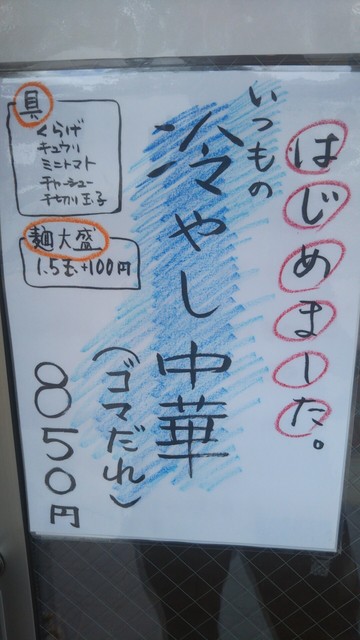 はじめました。
いつもの
冷やし中華
(ゴマだれ)
850円
具
くらげ
キュウリ
ミニトマト
チャーシュー
千切り玉子
麺大盛
1.5玉+100円